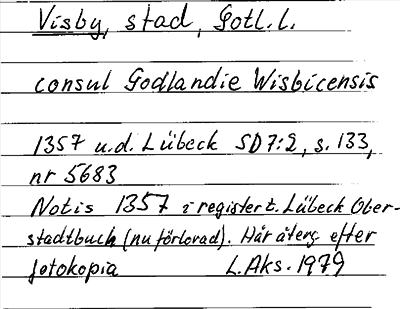 Visby, stad, Gotl. l.
consul Godlandie Wisbicensis
1357 u.d. Lübeck SD 7:2, s. 133,
nr 5683
Notis 1357 i register t. Lübeck Ober-
stadtbuch (nu förlorad). Här återg. efter
fotokopia L. Aks. 1979